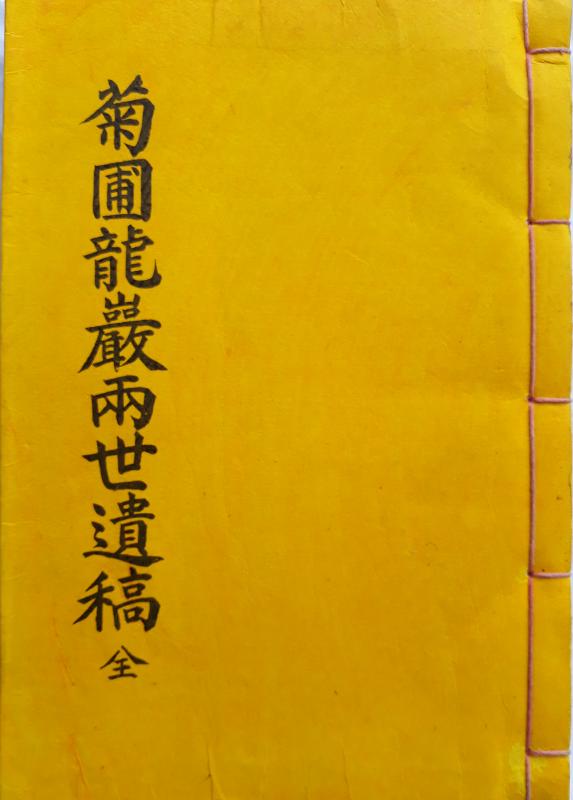 菊圃龍巖兩世遺稿 全